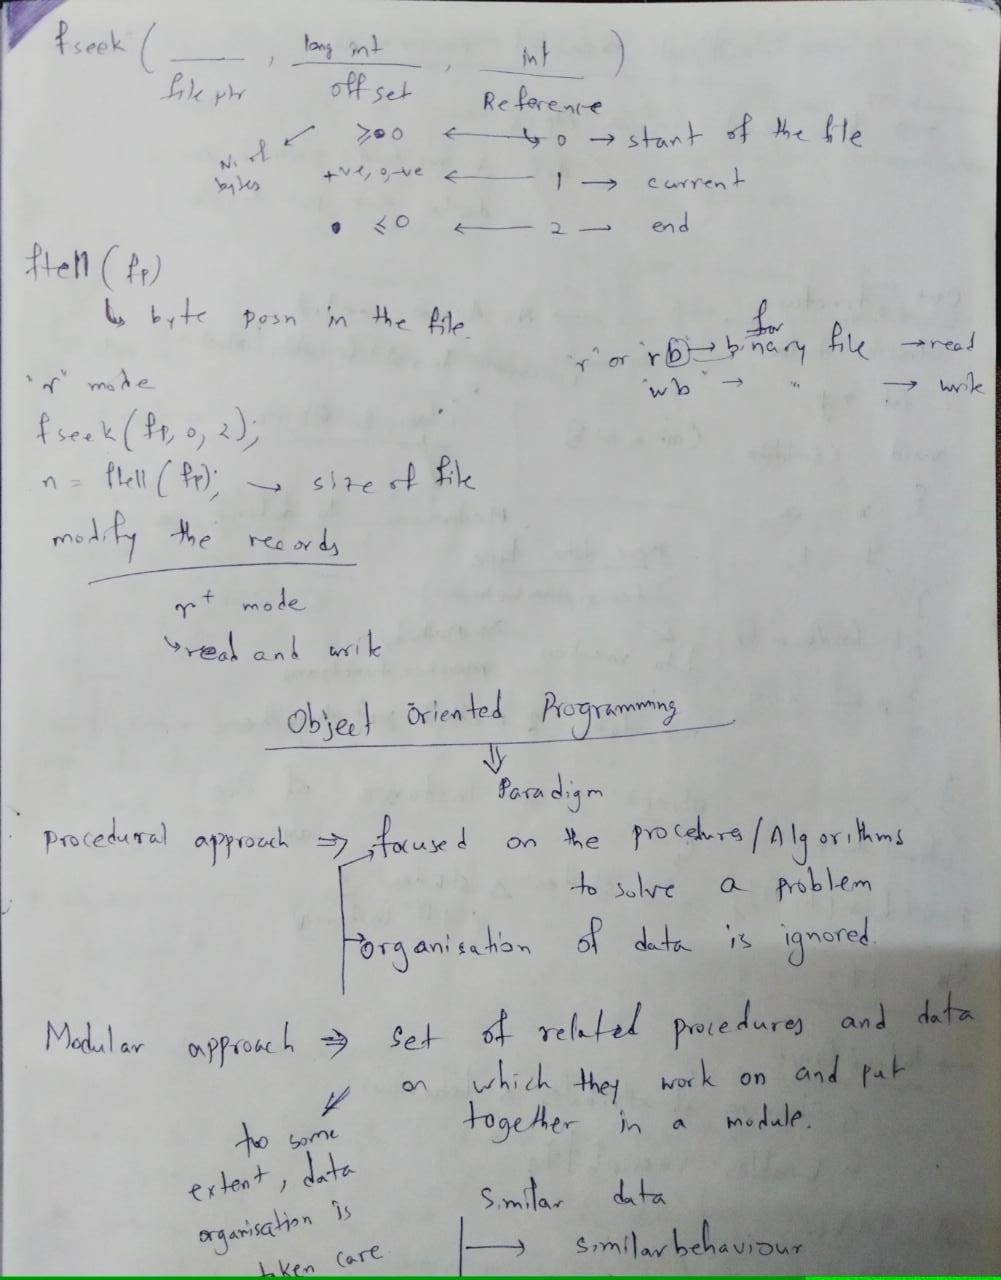 fseek ( ___ , long int , int )
file ptr offset Reference
≥ 0 ← 0 → start of the file
N. of
bytes
+ve, 0, -ve ← 1 → current
≤ 0 ← 2 → end
ftell (fp)
↳ byte posn in the file.
for
"r" or "rb" → binary file → read
"wb" → " → write
"r" mode
fseek (fp, 0, 2);
n = ftell (fp); → size of file
modify the records
r+ mode
↳ read and write
Object Oriented Programming
⇓
Paradigm
Procedural approach ⇒ focused on the procedures/Algorithms
to solve a problem
→ organisation of data is ignored.
Modular approach ⇒ set of related procedures and data
on which they work on and put
together in a module.
to some
extent, data
organisation is
taken care
Similar data
→ similar behaviour